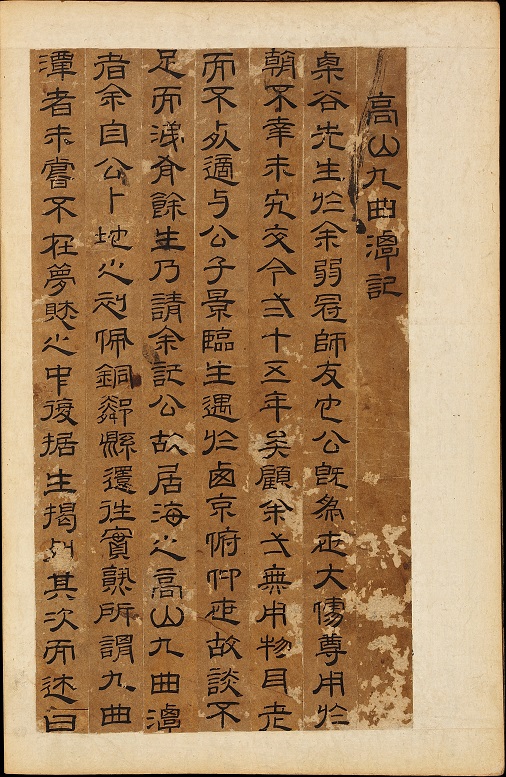 高山九曲潭記
栗谷先生於余弱冠師友也公旣爲世大儒尊用於
朝不幸未究交今十五年矣顧余無用物且老
而不死適与公子景臨生遇於西京俯仰世故談不
足而淺有餘生乃請余記公故居海之高山九曲潭
者余自公卜地之初佩銅鄰縣還往實熟所謂九曲
潭者未嘗不在夢寐之中復据生揭列其次而述曰